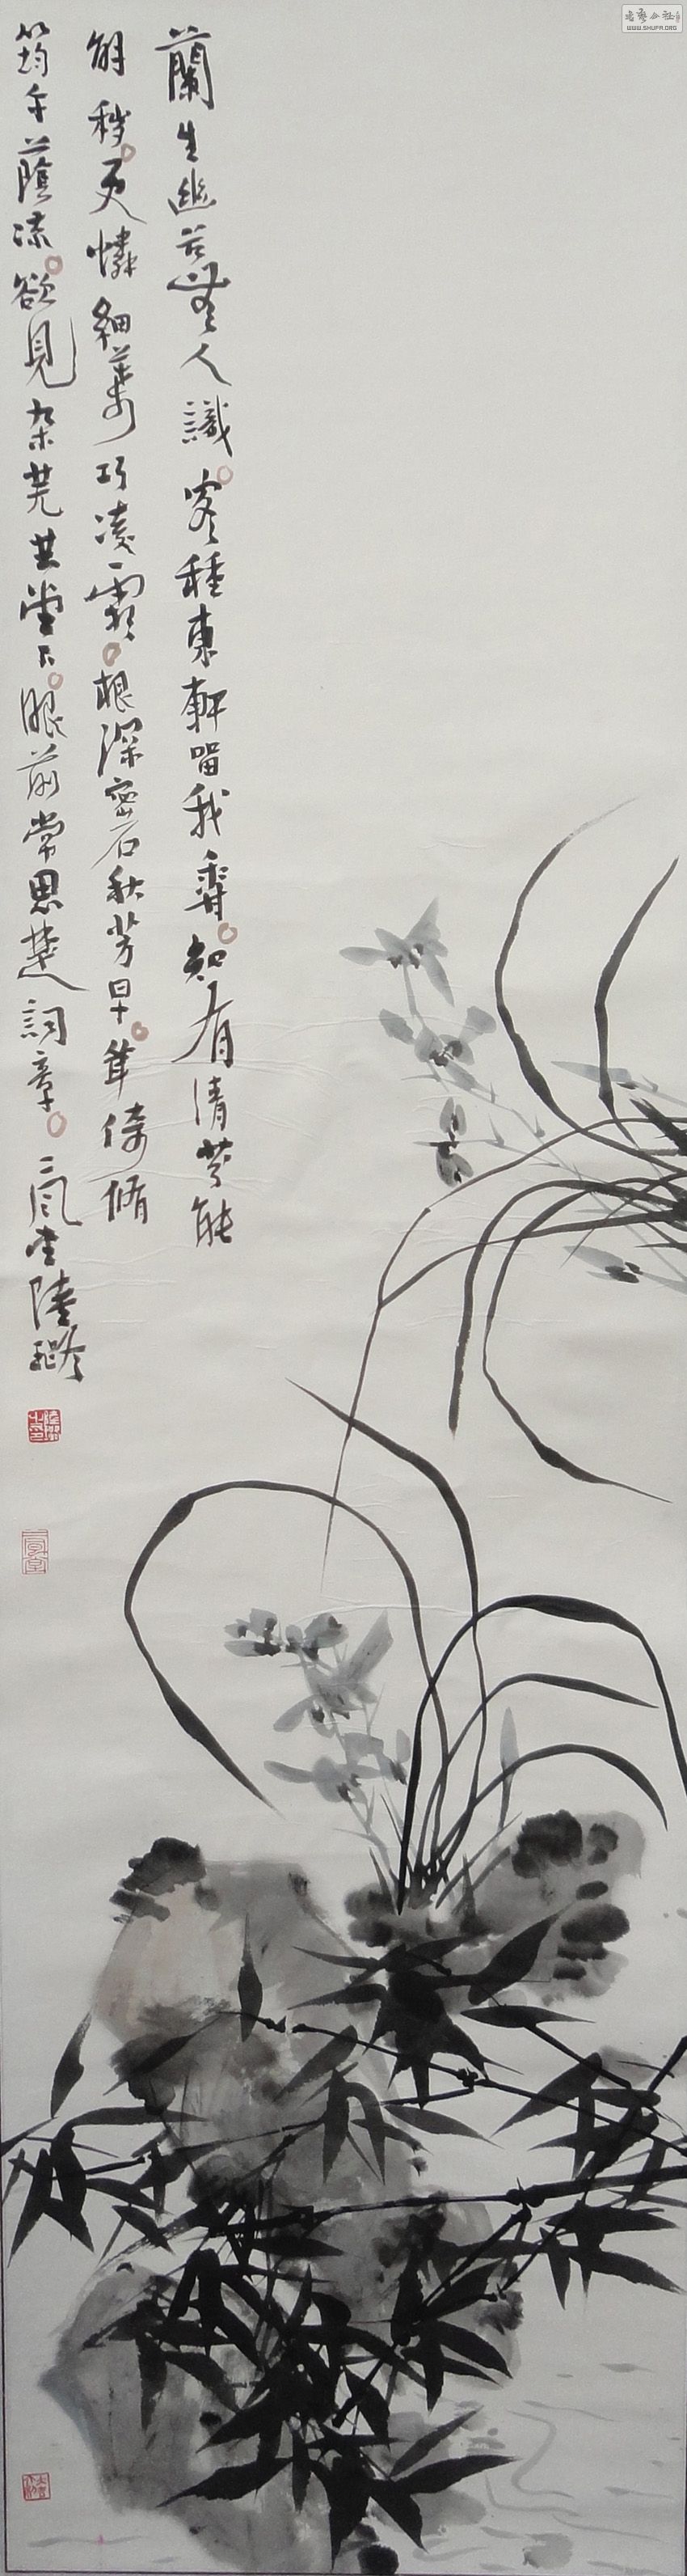 蘭生幽谷無人識客種東軒留我香知有清芬能
解穢更憐細葉巧凌霜根深密石秋芳早叢倚脩
筠午蔭涼欲見九芫共堂下眼前常思楚詞章二風堂陸
WWW.SHUFA.ORG